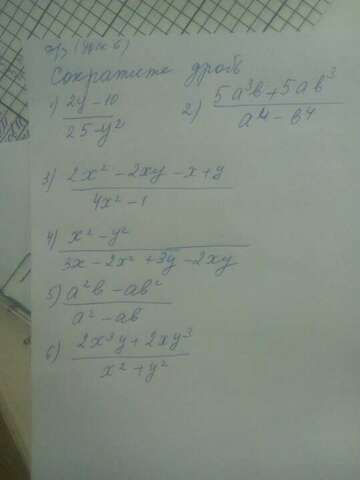 Сократите дробь
1) (2y - 10)/(25 - y²)
2) (5a³b + 5ab³)/(a⁴ - b⁴)
3) (2x² - 2xy - x + y)/(4x² - 1)
4) (x² - y²)/(3x - 2x² + 3y - 2xy)
5) (a²b - ab²)/(a² - ab)
6) (2x³y + 2xy³)/(x² + y²)